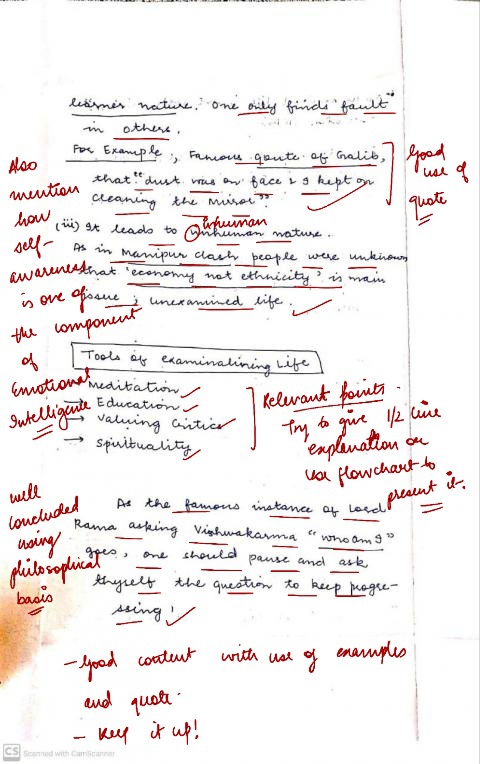 learner nature. One only finds "fault"
in others.
For Example, Famous qoute of Galib,
that "dust was on face & I kept on
cleaning the Mirror"
Good
use of
quote
Also
mention
how
self-
awareness
is one of
the component
of
Emotional
Intelligence
(iii) It leads to unhuman nature.
inhuman
As in Manipur clash people were unknown
that 'economy not ethnicity' is main
issue ; unexamined life.
Tools of examinalining Life
Meditation
→ Education
→ Valuing Critics
→ Spirituality
Relevant points.
Try to give 1/2 line
explanation or
use flowchart to
present it.
well
concluded
using
philosophical
basis
As the famous instance of Lord
Rama asking Vishwakarma "who am I"
goes, one should pause and ask
thyself the question to keep progre-
ssing!
- Good content with use of examples
and quote.
- Keep it up!
CS Scanned with CamScanner